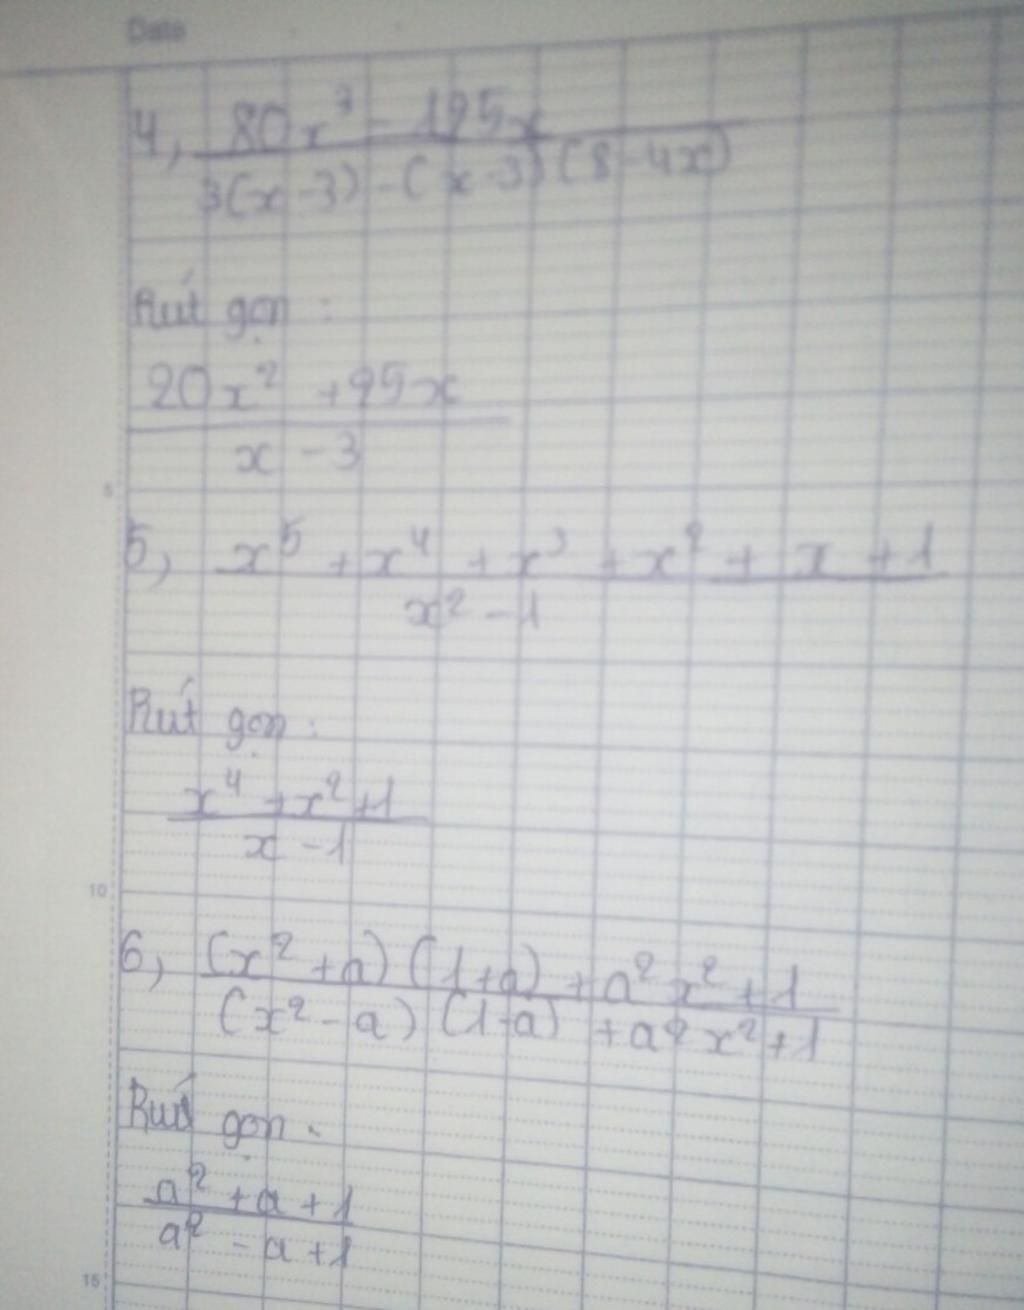 Date
4, 80x³ - 125x
3(x-3) - (x-3)(8-4x)
Rút gọn :
20x² + 25x
x - 3
5
5, x⁵ + x⁴ + x³ + x² + x + 1
x² - 1
Rút gọn :
x⁴ + x² + 1
x - 1
10
6, (x² + a)(1+a) + a²x² + 1
(x² - a)(1-a) + a²x² + 1
Rút gọn .
a² + a + 1
a² - a + 1
15